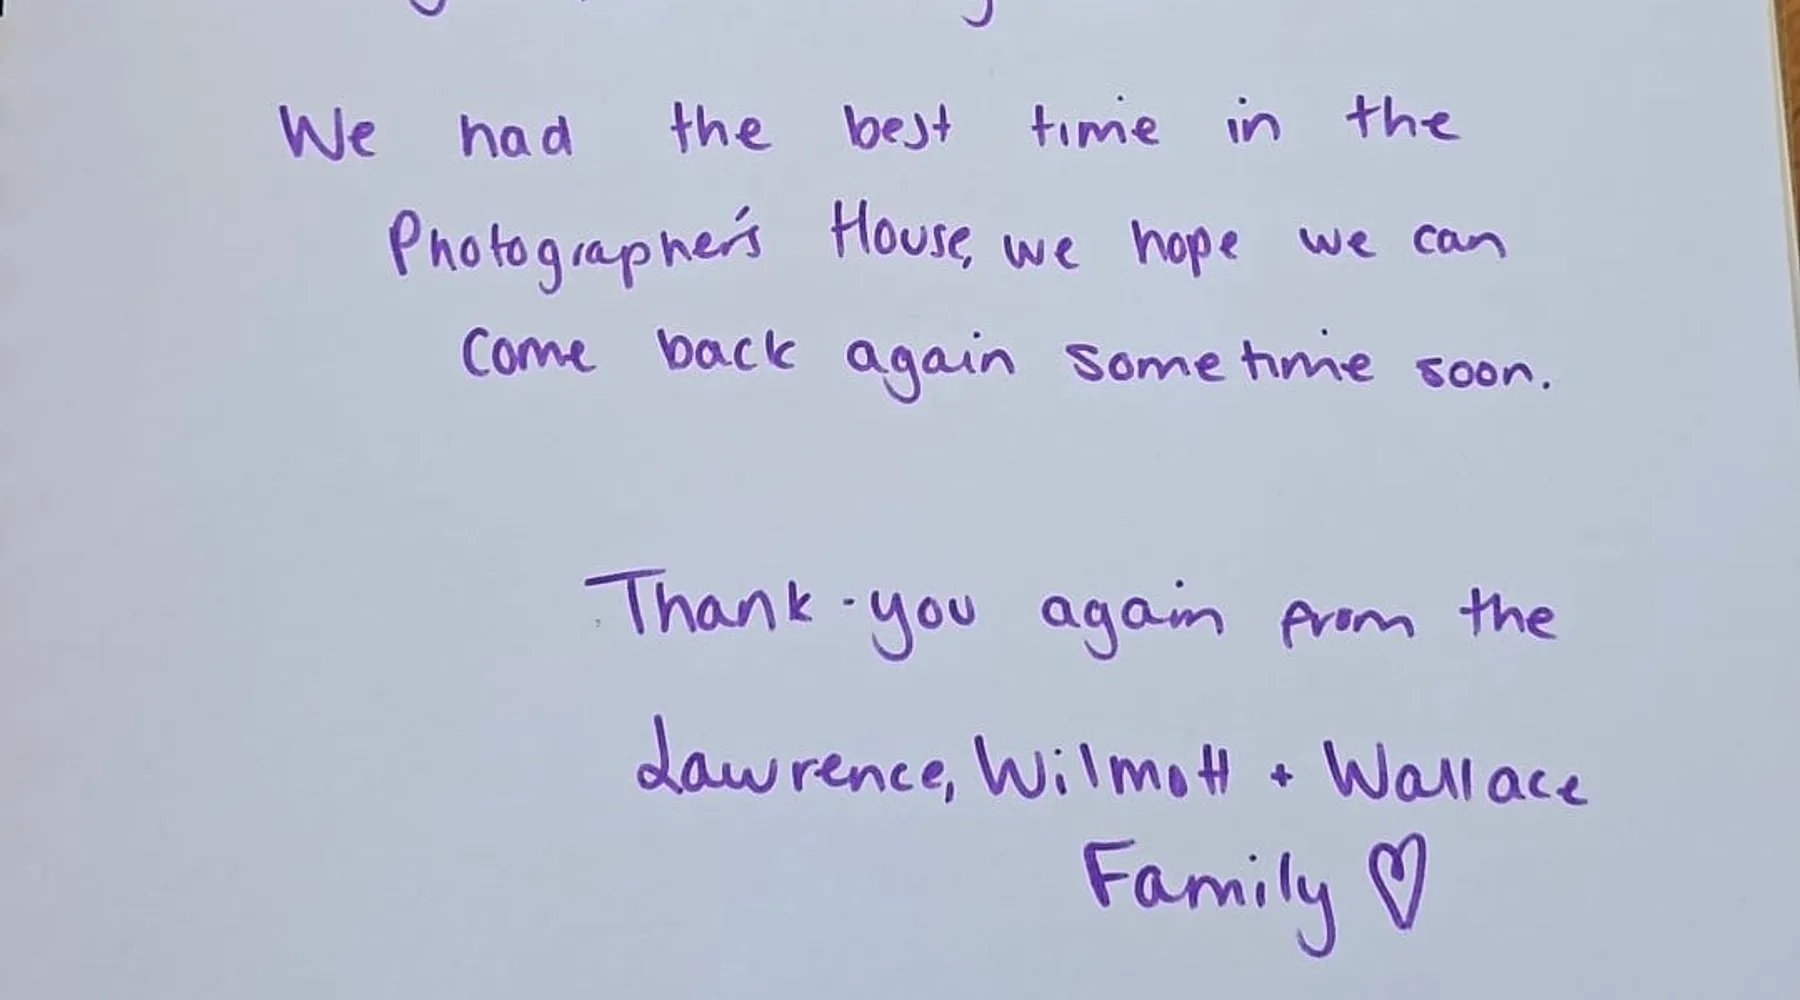 We had the best time in the
Photographer's House, we hope we can
come back again sometime soon.
Thank-you again from the
Lawrence, Wilmott + Wallace
Family ♡